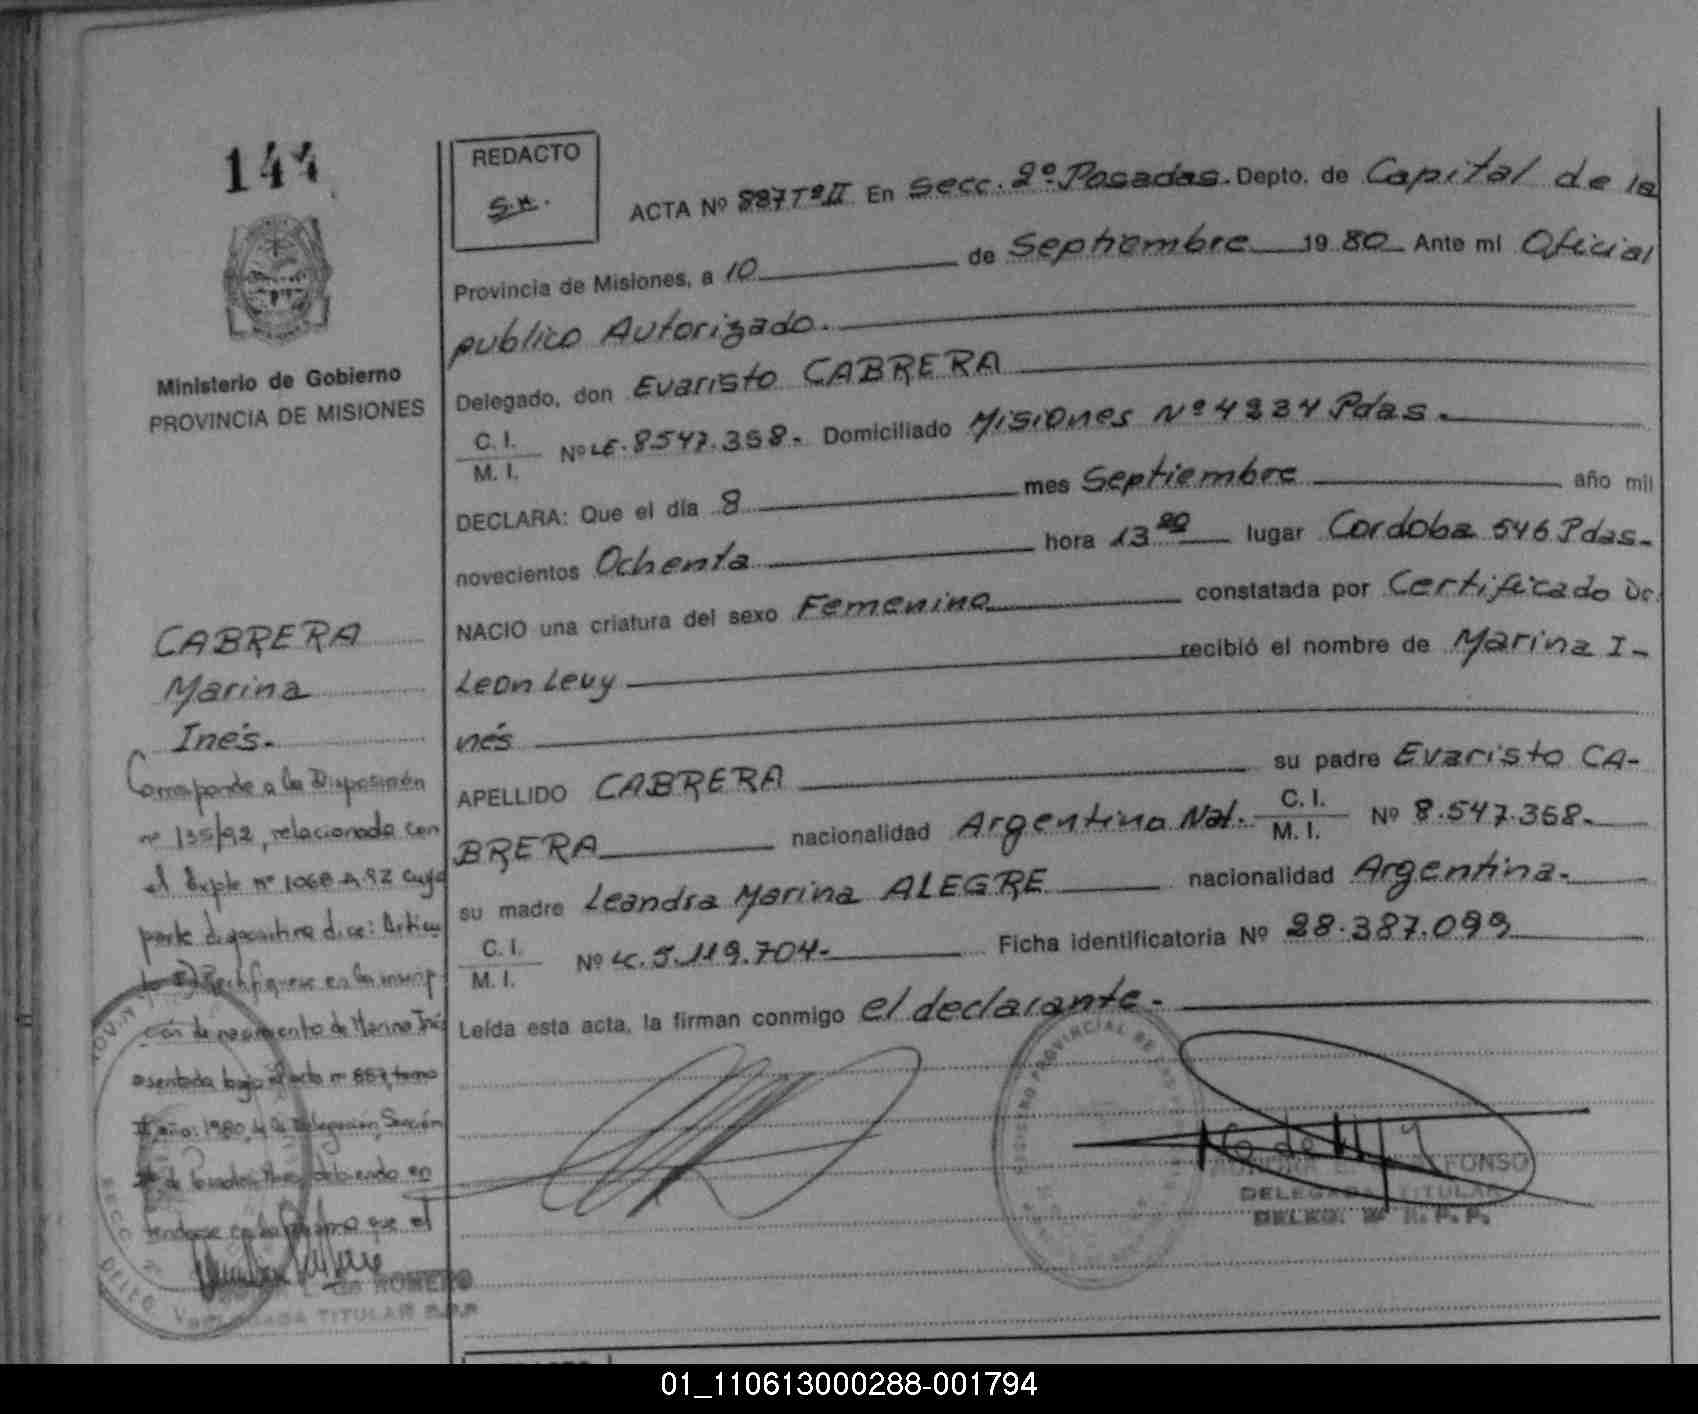 144
Ministerio de Gobierno
PROVINCIA DE MISIONES
CABRERA
Marina
Inés.
Corresponde a la Disposición
nº 135/92, relacionada con
el Expte nº 1068 A 92 cuya
parte dispositiva dice: Articu
lo Rectifiquese en la inscrip
ción de nacimiento de Marina Inés
asentada bajo el acta nº 887, tomo
II, año: 1980, de la Delegación, Sección
de Posadas, debiendo en
tenderse que el
de ROMERO
DELEGADA TITULAR R.P.P
REDACTO
ACTA Nº 887 Tº II En Secc. 2º Posadas. Depto. de Capital de la
Provincia de Misiones, a 10 de Septiembre 19 80 Ante mi Oficial
publico Autorizado.
Delegado, don Evaristo CABRERA
C. I.
M. I. Nº LE. 8547.368. Domiciliado Misiones Nº 4234 Pdas.
DECLARA: Que el día 8 mes Septiembre año mil
novecientos Ochenta hora 13 20 lugar Cordoba 546 Pdas.
NACIO una criatura del sexo Femenino constatada por Certificado Dr.
Leon Levy recibió el nombre de Marina I-
nés
APELLIDO CABRERA su padre Evaristo CA-
BRERA nacionalidad Argentino Nat. C. I.
M. I. Nº 8.547.368.
su madre Leandra Marina ALEGRE nacionalidad Argentina.
C. I.
M. I. Nº LC. 5.119.704- Ficha identificatoria Nº 28.387.099
Leída esta acta, la firman conmigo el declarante.
REGISTRO PROVINCIAL DE LAS
FONSO
DELEGADA TITULAR
DELEG. 2ª R.P.P.
01_110613000288-001794